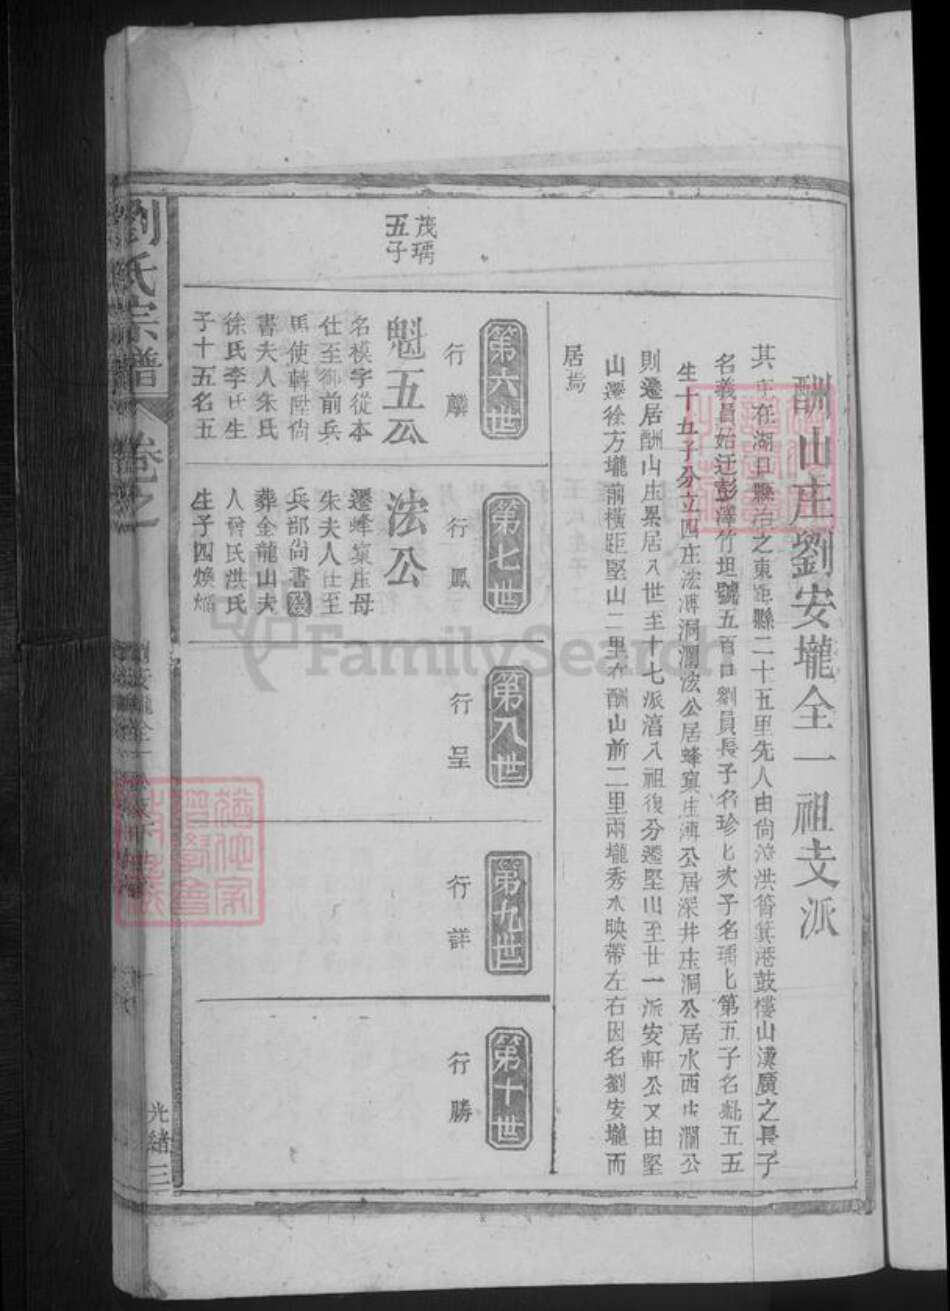 酬山庄劉安壠全一祖支派
其庄在湖口縣治之東距縣二十五里先人由尙洪筲箕港鼓樓山漢廣之長子
名義員始迁彭澤竹坦號五百口劉員長子名珍七次子名瑀七第五子名魁五五
生十五子分立四庄浤溥洞瀾浤公居蜂窠庄溥公居深井庄洞公居水西庄瀾公
則遷居酬山庄累居八世至十七派滔八祖復分遷堅山至廿一派安軒公又由堅
山遷徐方壠前橫距堅山二里在酬山前二里兩壠秀水映帶左右因名劉安壠而
居焉
茂瑀
五子
第六世
行麟
魁五公
名模字從本
仕至御前兵
馬使轉陞尙
書夫人朱氏
徐氏李氏生
子十五名五
第七世
行鳳
浤公
遷蜂窠庄母
朱夫人仕至
兵部尙書歿
葬金龍山夫
人曾氏洪氏
生子四煥熖
第八世
行呈
第九世
行詳
第十世
行勝
劉氏宗譜
卷之
光緒三
FamilySearch